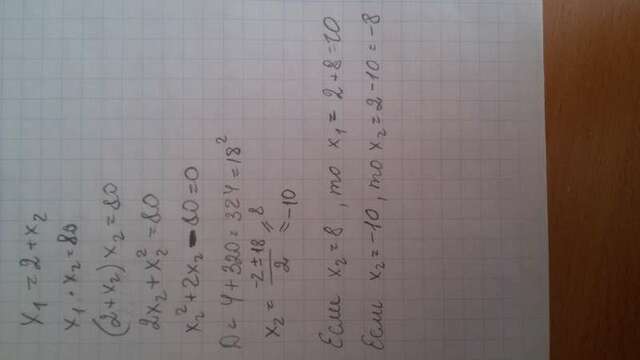 x₁ = 2 + x₂
x₁ · x₂ = 80
(2 + x₂) x₂ = 80
2x₂ + x₂² = 80
x₂² + 2x₂ - 80 = 0
D = 4 + 320 = 324 = 18²
x₂ = (-2 ± 18)/2 = 8
= -10
Если x₂ = 8, то x₁ = 2 + 8 = 10
Если x₂ = -10, то x₂ = 2 - 10 = -8